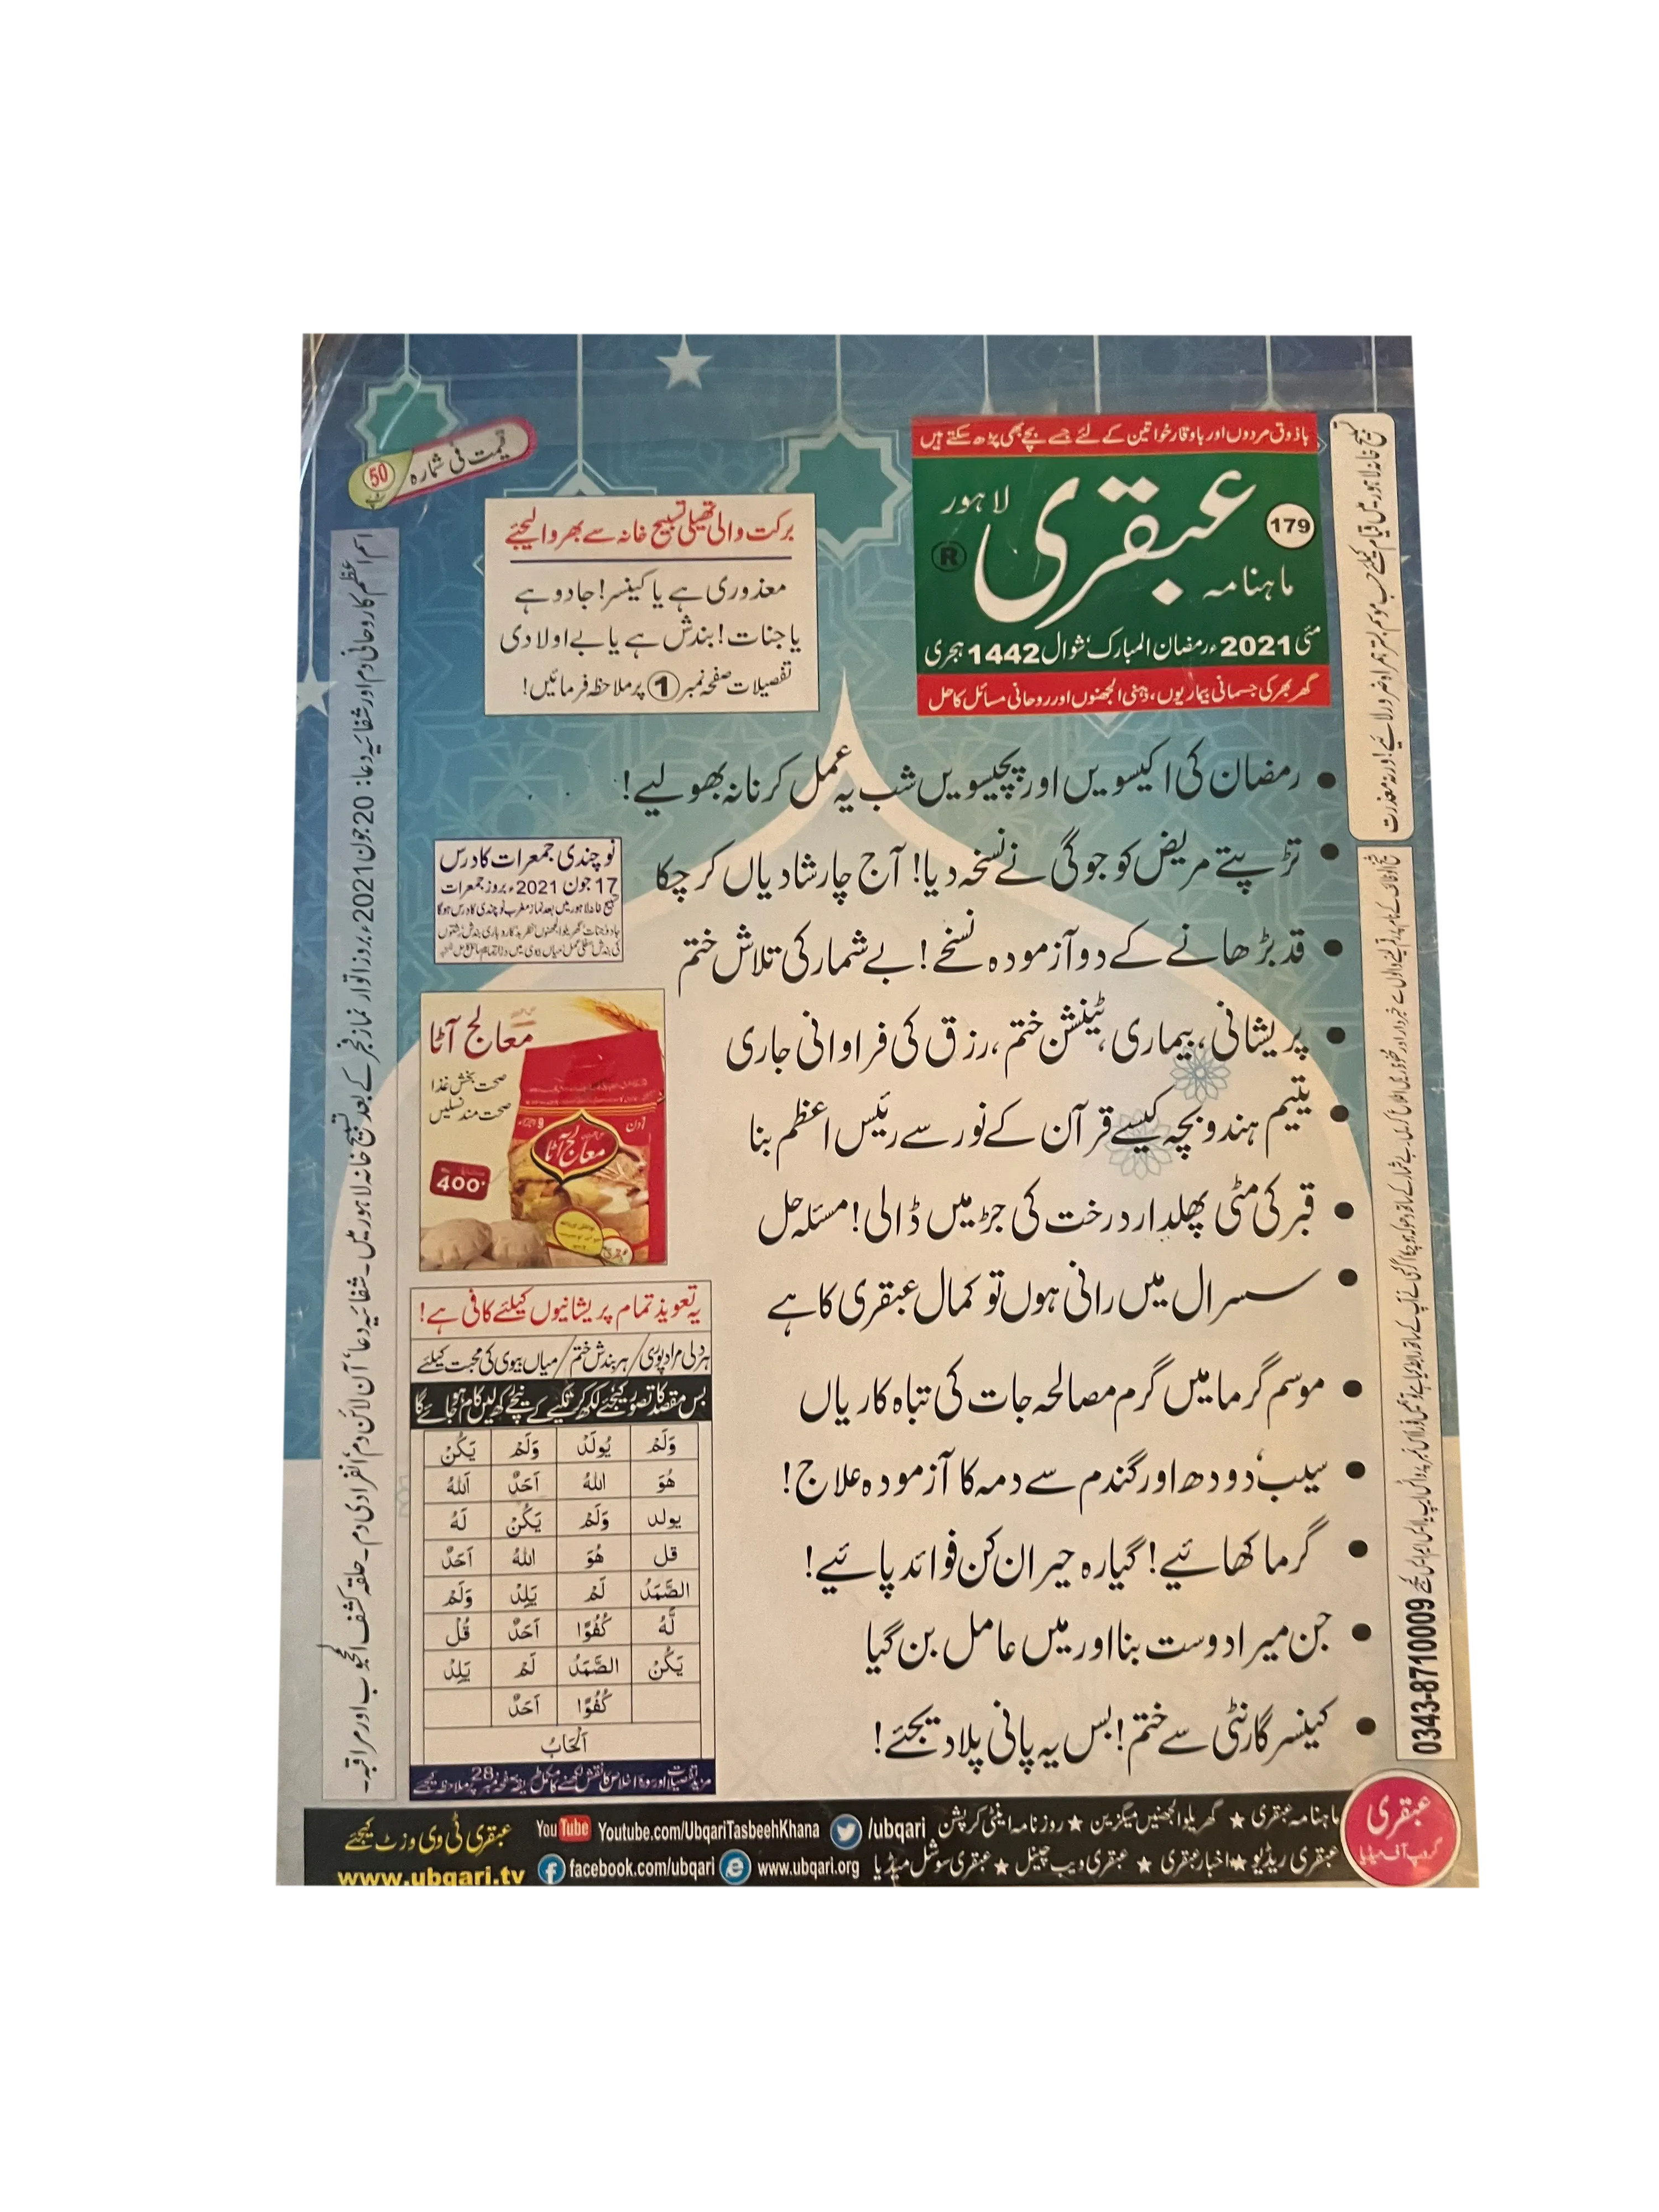 باذوق مردوں اور باوقار خواتین کے لئے جسے بچے بھی پڑھ سکتے ہیں
179
ماہنامہ عبقری لاہور
®
مئی 2021ء رمضان المبارک، شوال 1442 ہجری
گھر بھر کی جسمانی بیماریوں، ذہنی الجھنوں اور روحانی مسائل کا حل
قیمت فی شمارہ 50
برکت والی تھیلی تسبیح خانہ سے بھروا لیجئے
معذوری ہے یا کینسر! جادو ہے
یا جنات! بندش ہے یا بے اولادی
تفصیلات صفحہ نمبر 1 پر ملاحظہ فرمائیں!
• رمضان کی اکیسویں اور پچیسویں شب یہ عمل کرنا نہ بھولیے!
• تڑپتے مریض کو جوگی نے نسخہ دیا! آج چار شادیاں کر چکا
• قد بڑھانے کے دو آزمودہ نسخے! بے شمار کی تلاش ختم
• پریشانی، بیماری، ٹینشن ختم، رزق کی فراوانی جاری
• یتیم ہندو بچہ کیسے قرآن کے نور سے رئیس اعظم بنا
• قبر کی مٹی پھلدار درخت کی جڑ میں ڈالی! مسئلہ حل
• سسرال میں رانی ہوں تو کمال عبقری کا ہے
• موسم گرما میں گرم مصالحہ جات کی تباہ کاریاں
• سیب، دودھ اور گندم سے دمہ کا آزمودہ علاج!
• گرما کھائیے! گیارہ حیران کن فوائد پائیے!
• جن میرا دوست بنا اور میں عامل بن گیا
• کینسر گارنٹی سے ختم! بس یہ پانی پلا دیجئے!
نوچندی جمعرات کا درس
17 جون 2021ء بروز جمعرات
تسبیح خانہ لاہور میں بعد نماز مغرب نوچندی کا درس ہوگا
معالج آٹا
صحت بخش غذا
صحت مند نسلیں
معالج آٹا
400
عبقری
یہ تعویذ تمام پریشانیوں کیلئے کافی ہے!
ہر دلی مراد پوری/ہر بندش ختم/میاں بیوی کی محبت کیلئے
بس مقصد کا تصور کیجئے لکھ کر تکیے کے نیچے رکھ لیں کام ہو جائے گا
وَلَمْ يُولَدْ وَلَمْ يَكُنْ
هُوَ اللهُ اَحَدٌ اَللهُ
يولد وَلَمْ يَكُنْ لَهُ
قل هُوَ اللهُ اَحَدٌ
الصَّمَدُ لَمْ يَلِدْ وَلَمْ
لَّهُ كُفُوًا اَحَدٌ قُلْ
يَكُنْ الصَّمَدُ لَمْ يَلِدْ
كُفُوًا اَحَدٌ
مزید تفصیلات اور سورۃ اخلاص کا نقش لکھنے کا مکمل طریقہ صفحہ نمبر 28 پر ملاحظہ کیجئے
اسم اعظم کا روحانی دم اور شفائیہ دعا: 20 جون 2021ء بروز اتوار نماز فجر کے بعد تسبیح خانہ لاہور میں۔ شفائیہ دعا، آن لائن دم، انفرادی دم۔ حلقہ کشف المحجوب اور مراقبہ۔
تسبیح خانہ لاہور میں قیام کیلئے حسب موسم بستر ہمراہ ضرور لائیے! ورنہ معذرت
0343-8710009
عبقری گروپ آف میڈیا
ماہنامہ عبقری ★ گھریلو الجھنیں میگزین ★ روزنامہ اینٹی کرپشن /ubqari Youtube.com/UbqariTasbeehKhana YouTube عبقری ٹی وی وزٹ کیجئے
عبقری ریڈیو ★ اخبار عبقری ★ عبقری ویب چینل ★ عبقری سوشل میڈیا www.ubqari.org facebook.com/ubqari www.ubqari.tv